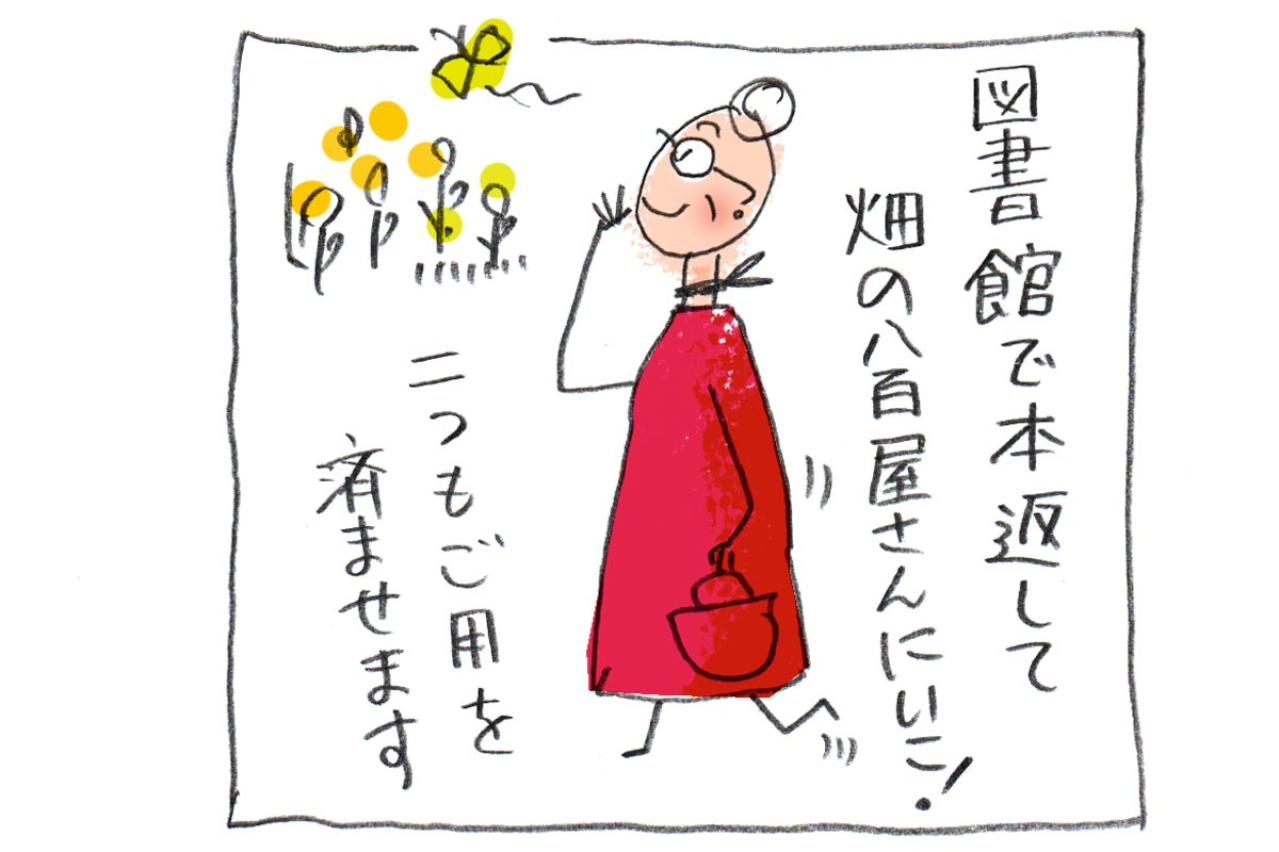 図書館で本返して
畑の八百屋さんにいこ!
二つもご用を
済ませます